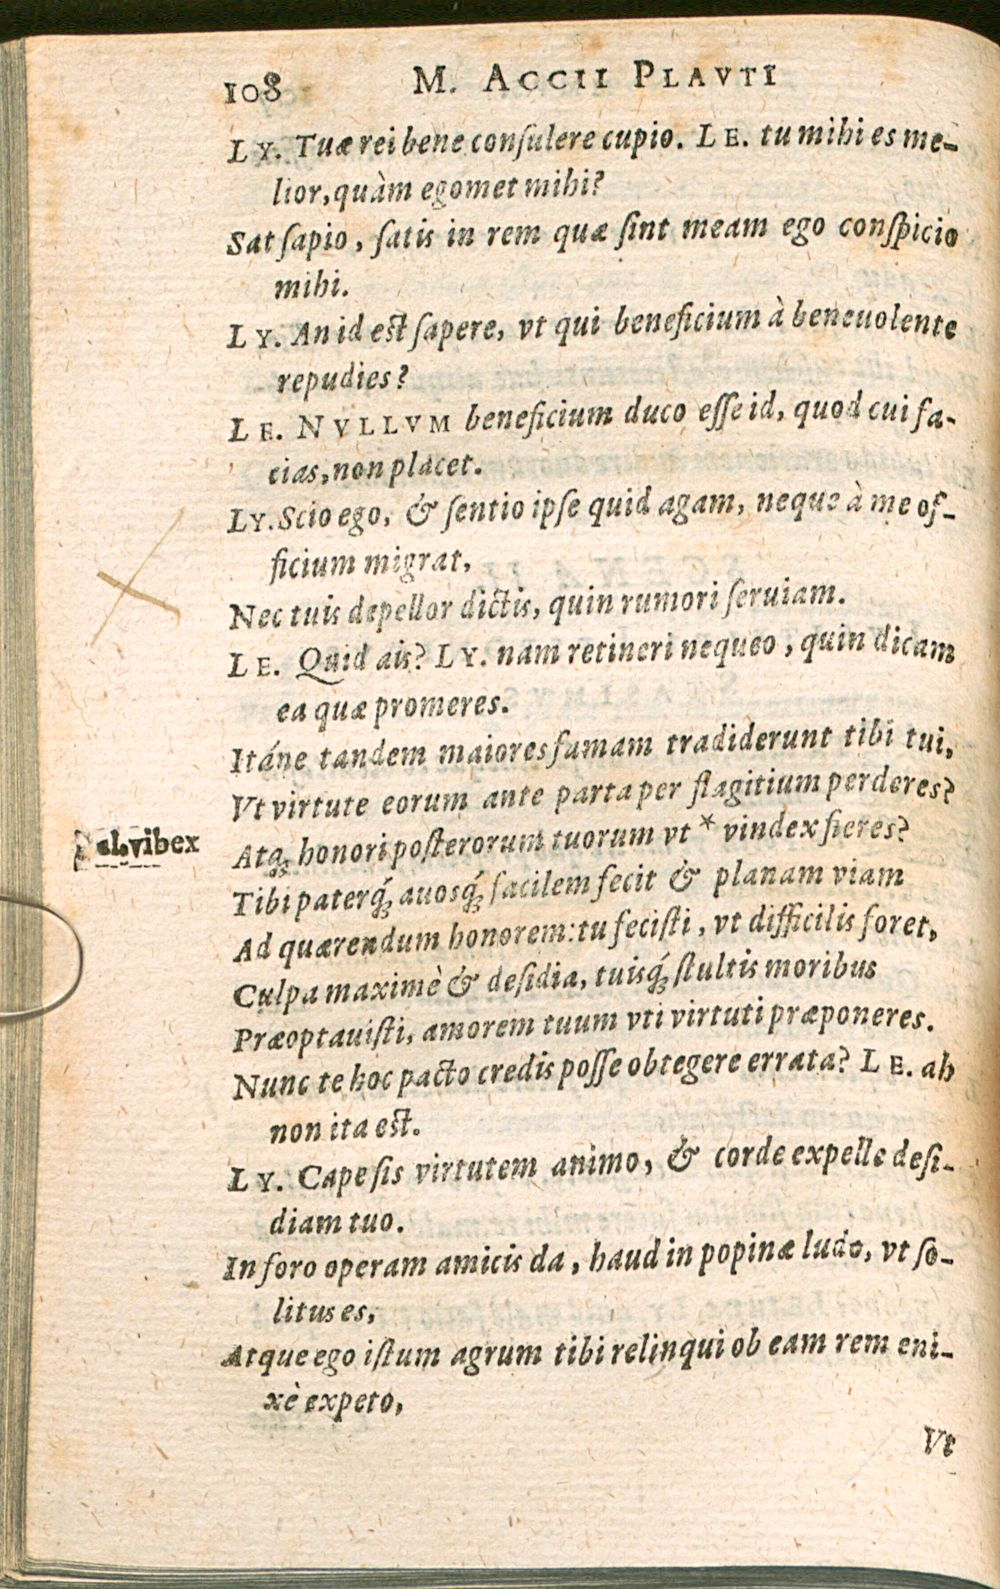 108 M. ACCII PLAVTI
LY. Tuæ rei bene conſulere cupio. LE. tu mihi es me-
lior, quàm egomet mihi?
Sat ſapio, ſatis in rem quæ ſint meam ego conſpicio
mihi.
LY. An id eſt ſapere, vt qui beneficium à beneuolente
repudies?
LE. NVLLVM beneficium duco eſſe id, quod cui fa-
cias, non placet.
LY. Scio ego, & ſentio ipſe quid agam, neque à me of-
ficium migrat,
Nec tuis depellor dictis, quin rumori ſeruiam.
LE. Quid ais? LY. nam retineri nequeo, quin dicam
ea quæ promeres.
Itáne tandem maiores famam tradiderunt tibi tui,
Vt virtute eorum ante parta per flagitium perderes?
al. vibex
Atq; honori poſterorum tuorum vt * vindex fieres?
Tibi paterq́; auosq́; facilem fecit & planam viam
Ad quærendum honorem: tu feciſti, vt difficilis foret,
Culpa maximè & deſidia, tuisq́; ſtultis moribus
Præoptauiſti, amorem tuum vti virtuti præponeres.
Nunc te hoc pacto credis poſſe obtegere errata? LE. ah
non ita eſt.
LY. Cape ſis virtutem animo, & corde expelle deſi-
diam tuo.
In foro operam amicis da, haud in popinæ ludo, vt ſo-
litus es,
Atque ego iſtum agrum tibi relinqui ob eam rem eni-
xè expeto,
Vt